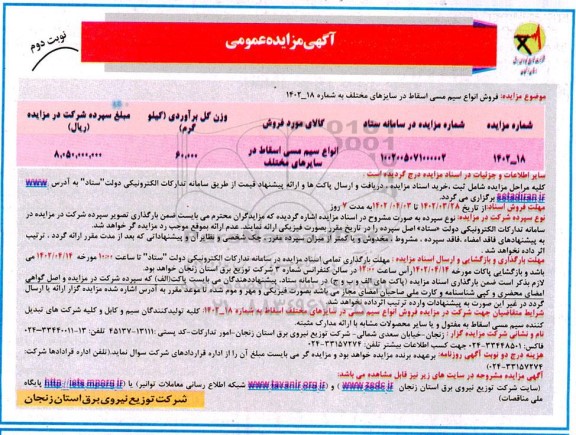 نوبت دوم
آگهی مزایده عمومی
موضوع مزایده: فروش انواع سیم مسی اسقاط در سایزهای مختلف به شماره ۱۸_۱۴۰۲
شماره مزایده
شماره مزایده در سامانه ستاد
کالای مورد فروش
وزن کل برآوردی (کیلو گرم)
مبلغ سپرده شرکت در مزایده (ریال)
۱۸_۱۴۰۲
۱۰۰۲۰۰۵۷۱۰۰۰۰۰۲
انواع سیم مسی اسقاط در سایزهای مختلف
۶۰,۰۰۰
۸,۰۵۰,۰۰۰,۰۰۰
سایر اطلاعات و جزئیات در اسناد مزایده درج گردیده است.
کلیه مراحل مزایده شامل ثبت ،خرید اسناد مزایده ، دریافت و ارسال پاکت ها و ارائه پیشنهاد قیمت از طریق سامانه تدارکات الکترونیکی دولت"ستاد" به آدرس www.
setadiran.ir برگزاری می گردد.
مهلت فروش اسناد:از تاریخ ۱۴۰۲/۰۳/۲۸ تا ۱۴۰۲/۰۴/۰۳ به مدت ۷ روز
نوع سپرده شرکت در مزایده: نوع سپرده به صورت مشروح در اسناد مزایده اشاره گردیده که مزایدگران محترم می بایست ضمن بارگذاری تصویر سپرده شرکت در مزایده در
سامانه تدارکات الکترونیکی دولت «ستاد» اصل سپرده را در تاریخ مقرر بصورت فیزیکی ارائه نمایند. عدم ارائه بموقع موجب رد مزایده گر خواهد شد.
به پیشنهادهای فاقد امضاء ،فاقد سپرده ، مشروط ، مخدوش و یا کمتر از میزان سپرده مقرر، چک شخصی و نظایر آن و پیشنهاداتی که بعد از مدت مقرر ارائه گردد ، ترتیب
اثر داده نخواهد شد .
مهلت بارگذاری و بازگشایی و ارسال اسناد مزایده : مهلت بارگذاری تمامی اسناد مزایده در سامانه تدارکات الکترونیکی دولت "ستاد" تا ساعت ۱۰:۰۰ مورخه ۱۴۰۲/۰۴/۱۴ می
باشد و بازگشایی پاکات مورخه ۱۴۰۲/۰۴/۱۴ رأس ساعت ۱۲:۰۰ در سالن کنفرانس شماره ۳ شرکت توزیع برق استان زنجان خواهد بود.
لازم بذکر است ضمن بارگذاری اسناد مزایده (پاکت های الف و ب و ج) در سامانه ستاد، پیشنهاددهندگان می بایست پاکت(الف) که سپرده شرکت در مزایده و اصل گواهی
امضای محضری و کپی شناسنامه و کارت ملی صاحبان امضای مجاز می باشد بصورت فیزیکی و مهر و موم شده تا موعد مقرر به آدرس اشاره شده مزایده گزار ارائه یا ارسال
گردد در غیر این صورت به پیشنهادات وارده ترتیب اثر داده نخواهد شد.
شرایط متقاضیان جهت شرکت در مزایده فروش انواع سیم مسی در سایزهای مختلف اسقاط به شماره ۱۸_۱۴۰۲: کلیه تولیدکنندگان سیم و کابل و کلیه شرکت های تبدیل
کننده سیم مسی اسقاط به مفتول و یا سایر محصولات مشابه با ارائه مدارک مثبته.
نام و نشانی شرکت مزایده گزار : زنجان-خیابان سعدی شمالی- شرکت توزیع نیروی برق استان زنجان-امور تدارکات-کد پستی:۱۳۱۱۱-۴۵۱۳۷ تلفن: ۱۳-۳۳۴۴۰۰۱۱-۰۲۴
فاکس: ۳۳۴۴۸۵۰۱-۰۲۴ جهت کسب اطلاعات بیشتر تلفن: ۳۳۱۵۷۲۷۴-۰۲۴
هزینه درج دو نوبت آگهی روزنامه: برعهده برنده مزایده خواهد بود و مزایده گر می بایست مبلغ آن را از اداره قراردادهای شرکت سوال نماید.(تلفن اداره قرادادها شرکت:
۳۳۱۵۷۲۷۴-۰۲۴)
آگهی مزایده مشروحه در سایت های زیر نیز قابل مشاهده می باشد:
(سایت شرکت توزیع نیروی برق استان زنجان www.zedc.ir ) و (www.tavanir.org.ir شبکه اطلاع رسانی معاملات توانیر) یا (http://iets.mporg.ir پایگاه
ملی مناقصات)
شرکت توزیع نیروی برق استان زنجان